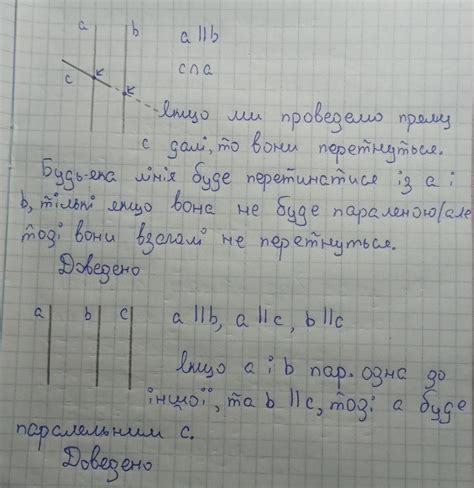 a b a || b
c c∩a
Якщо ми проведемо пряму
c далі, то вони перетнуться.
Будь-яка лінія буде перетинатися із a і
b, тільки якщо вона не буде параленою/але
тоді вони взагалі не перетнуться.
Доведено
a b c a || b, a || c, b || c
Якщо a і b пар. одна до
іншої, та b || c, тоді a буде
паралельним c.
Доведено